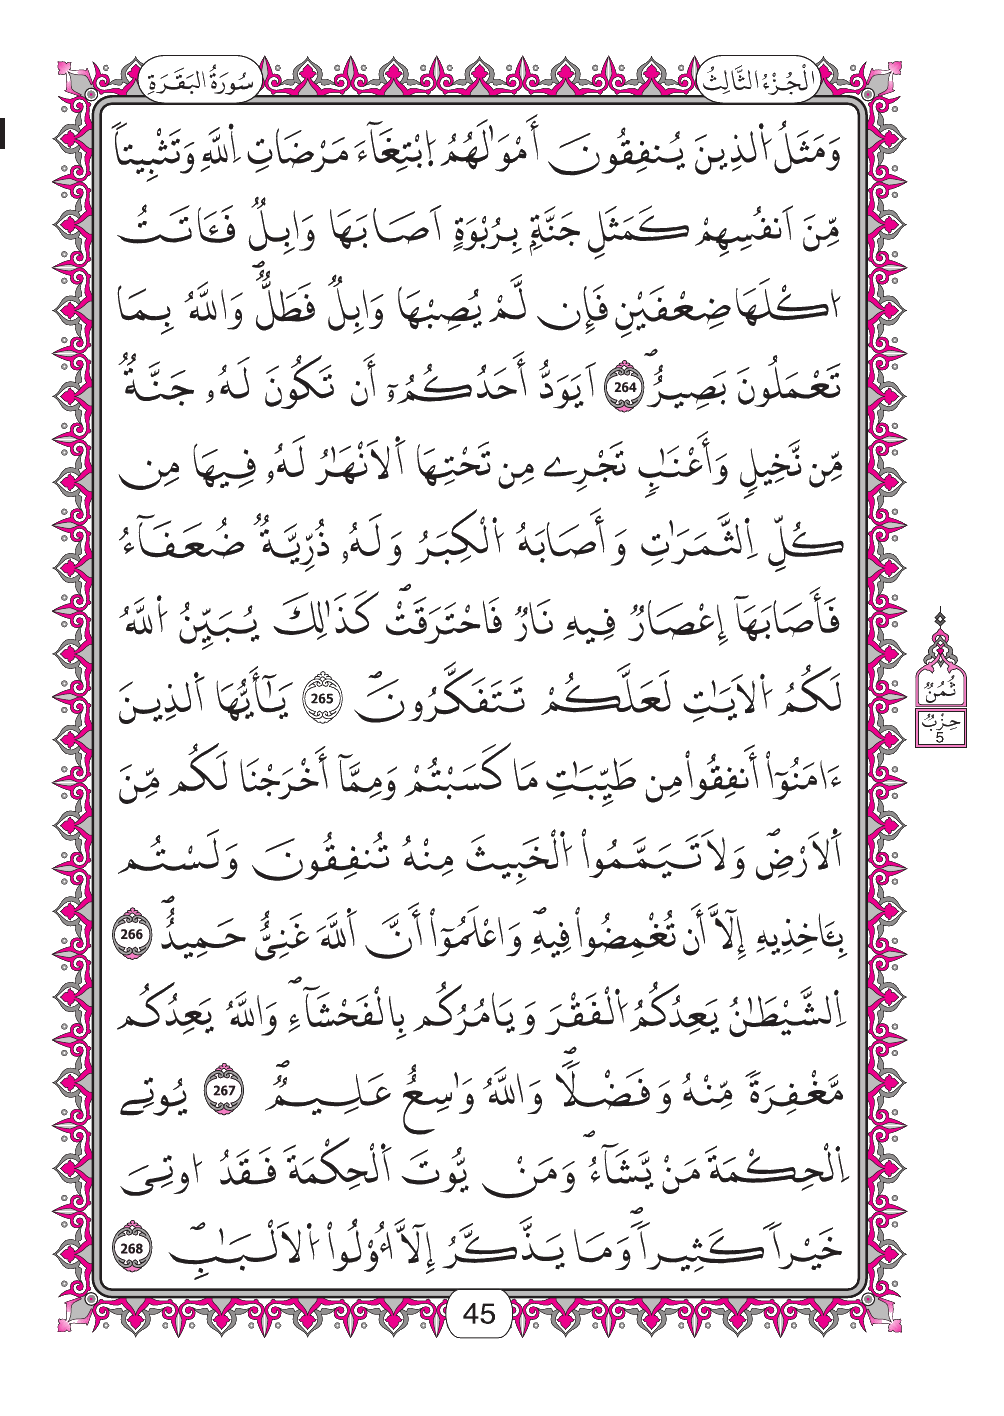 الْجُزْءُ الثَّالِثُ
سُورَةُ الْبَقَرَةِ
وَمَثَلُ اُ۬لذِينَ يُنفِقُونَ أَمْوَٰلَهُمُ اُ۪بْتِغَآءَ مَرْضَاتِ اِ۬للَّهِ وَتَثْبِيتاٗ
مِّنَ اَنفُسِهِمْ كَمَثَلِ جَنَّةِۢ بِرُبْوَةٍ اَصَابَهَا وَابِلٞ فَـَٔاتَتُ
ا۟كْلَهَا ضِعْفَيْنِ فَإِن لَّمْ يُصِبْهَا وَابِلٞ فَطَلّٞۖ وَاللَّهُ بِمَا
تَعْمَلُونَ بَصِيرٌۖ 264 اَيَوَدُّ أَحَدُكُمُۥٓ أَن تَكُونَ لَهُۥ جَنَّةٞ
مِّن نَّخِيلٖ وَأَعْنَٰبٖ تَجْرِے مِن تَحْتِهَا اَ۬لَانْهَٰرُ لَهُۥ فِيهَا مِن
كُلِّ اِ۬لثَّمَرَٰتِ وَأَصَابَهُ اُ۬لْكِبَرُ وَلَهُۥ ذُرِّيَّةٞ ضُعَفَآءُ
فَأَصَابَهَآ إِعْصَارٞ فِيهِ نَارٞ فَاحْتَرَقَتْۖ كَذَٰلِكَ يُبَيِّنُ اُ۬للَّهُ
لَكُمُ اُ۬لَايَٰتِ لَعَلَّكُمْ تَتَفَكَّرُونَۖ 265 يَٰٓأَيُّهَا اَ۬لذِينَ
ءَامَنُوٓاْ أَنفِقُواْ مِن طَيِّبَٰتِ مَا كَسَبْتُمْ وَمِمَّآ أَخْرَجْنَا لَكُم مِّنَ
اَ۬لَارْضِۖ وَلَا تَيَمَّمُواْ اُ۬لْخَبِيثَ مِنْهُ تُنفِقُونَ وَلَسْتُم
بِـَٔاخِذِيهِ إِلَّآ أَن تُغْمِضُواْ فِيهِۖ وَاعْلَمُوٓاْ أَنَّ اَ۬للَّهَ غَنِيٌّ حَمِيدٌۖ 266
اِ۬لشَّيْطَٰنُ يَعِدُكُمُ اُ۬لْفَقْرَ وَيَامُرُكُم بِالْفَحْشَآءِۖ وَاللَّهُ يَعِدُكُم
مَّغْفِرَةٗ مِّنْهُ وَفَضْلاٗۖ وَاللَّهُ وَٰسِعٌ عَلِيمٞۖ 267 يُوتِے
اِ۬لْحِكْمَةَ مَنْ يَّشَآءُۖ وَمَنْ يُّوتَ اَ۬لْحِكْمَةَ فَقَدُ ا۟وتِيَ
خَيْراٗ كَثِيراٗۖ وَمَا يَذَّكَّرُ إِلَّآ أُوْلُواْ اُ۬لَالْبَٰبِۖ 268
ثُمُنُ
حِزْبٌ
5
45